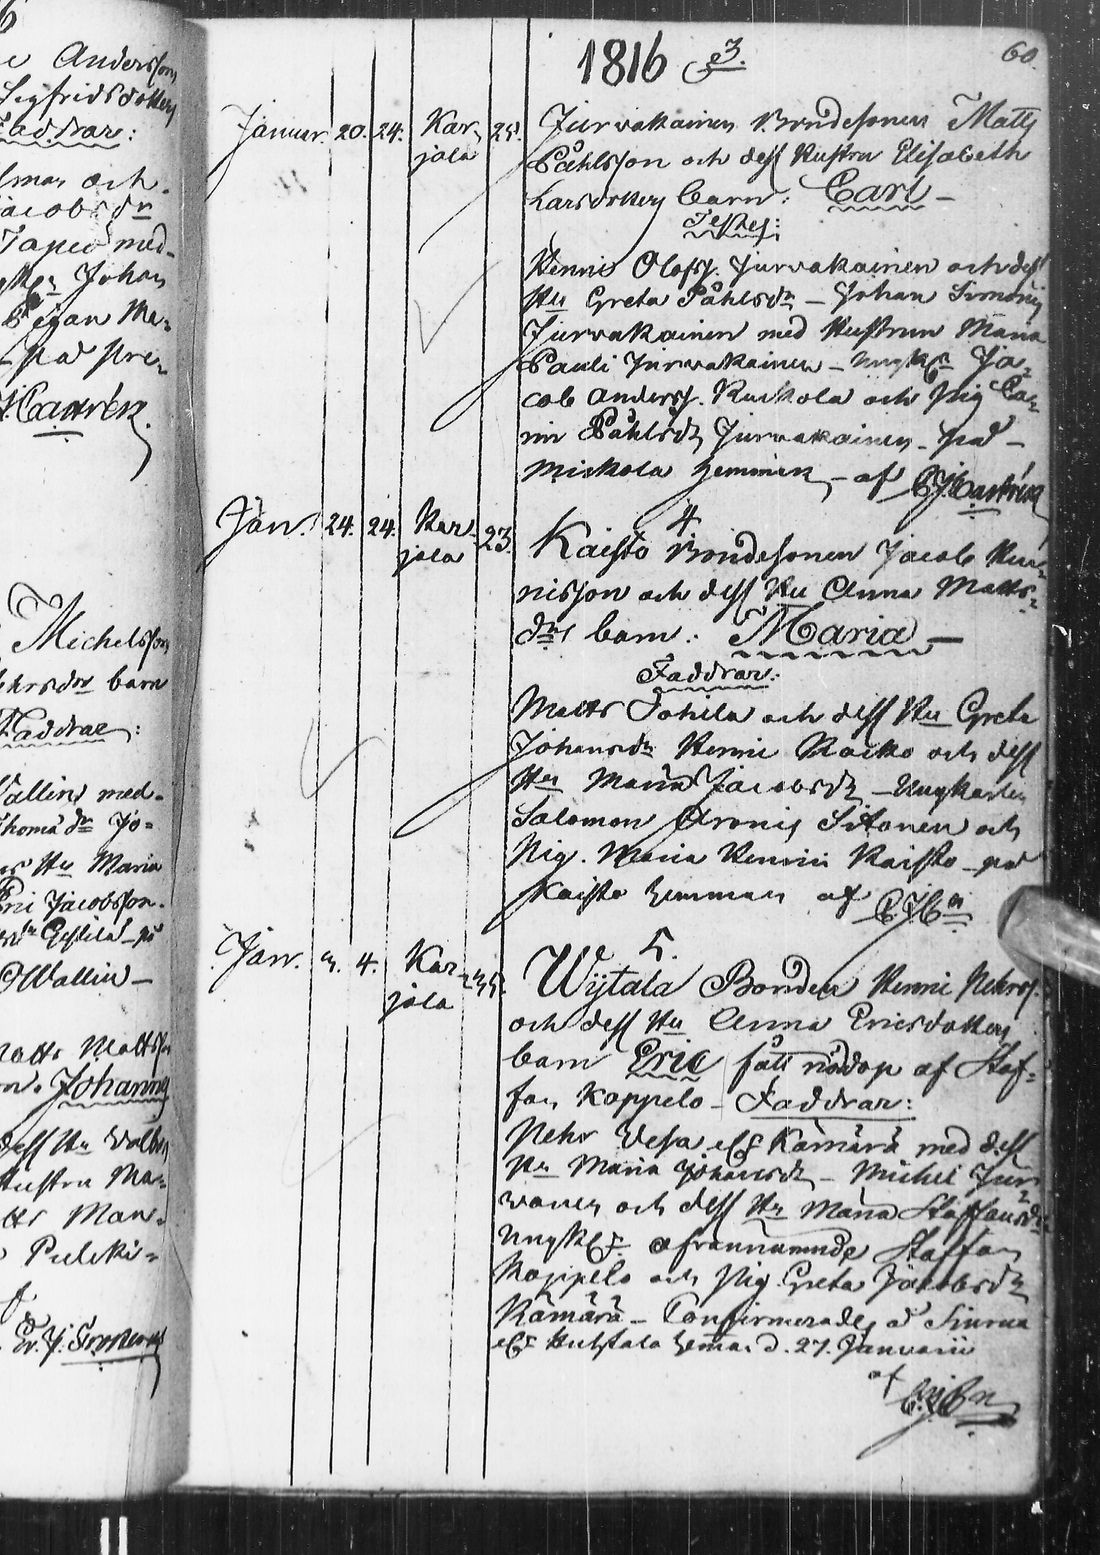 e Andersson
Sigfridsdotters
Faddrar:
och
Jacobsdr
med-
Johan
på
Castrén.
Michelsson
barn
Faddrar:
Wallins med-
Thomædr Jo=
Hu Maria
Jacobsson.
Wallin —
Matts Mattsson
Johannes
dess Hu Walborg
Hustru Ma=
Pulcki=
60.
1816 3.
Januar. 20. 24. Kar= 25. Jurwakainen Bondesonen Matts
jala Påhlsson och dess Hustru Elisabeth
Larsdotters barn: Carl —
Testes:
Henric Olofss. Jurwakainen och dess
Hu Greta Påhlsdr — Johan Simonis
Jurwakainen med Hustrun Maria
Pauli Jurwakainen — ungk Ja=
cob Anderss. Ruckola och Pig Ca=
rin Påhlsdr Jurwakainen — på —
Miskola hemman — af CJCastrén
4
Jan. 24. 24. Kar= 23. Kaisto Bondesonen Jacob Hen=
jala nisson och dess Hu Anna Matts=
drs barn: Maria —
Faddrar:
Matts Tohila och dess Hu Greta
Johansdr Henric Raicko och dess
Hu Maria Jacobsdr — Ungkarlen
Salomon Aronis Sitonen och
Pig. Maria Henrici Kaisto — på
Kaisto hemman af CJCn
5.
Jan. 3. 4. Kar= 35. Wijtala Bonden Henric Pehrss.
jala och dess Hu Anna Ericsdotters
barn Eric fått nöddop af Staf=
fan Koppelo — Faddrar:
Pehr Vesa elr Kämärä med dess
Hu Maria Johansdr — Michel Jur=
wanen och dess Hu Maria Staffansdr
ungk afvannämnde Staffan
Koppelo och Pig Greta Jacobsdr
Kämärä — Confirmerades å Siurua
elr Huhtala hemman d. 27. Januarii
af
CJCn